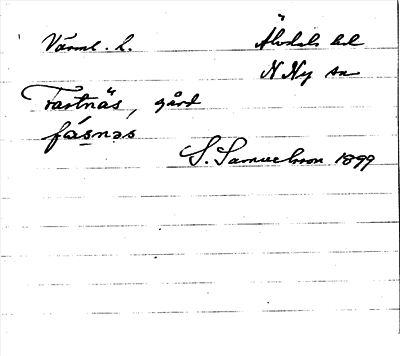 Värml. l. Älvdals hd
N Ny sn
Fastnäs, gård
fásnəs
S. Samuelsson 1899